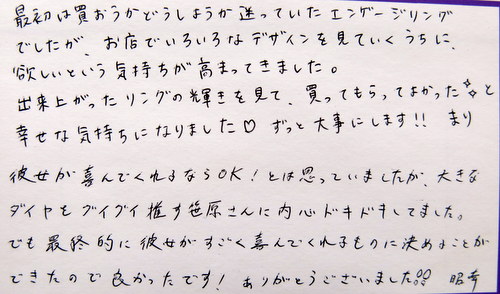 最初は買おうかどうしようか迷っていたエンゲージリング
でしたが、お店でいろいろなデザインを見ていくうちに、
欲しいという気持ちが高まってきました。
出来上がったリングの輝きを見て、買ってもらってよかった✨と
幸せな気持ちになりました♡ ずっと大事にします!! まり
彼女が喜んでくれるならOK!とは思っていましたが、大きな
ダイヤをグイグイ推す笹原さんに内心ドキドキしてました。
でも最終的に彼女がすごく喜んでくれるものに決めることが
できたので良かったです! ありがとうございました!! 昭幸